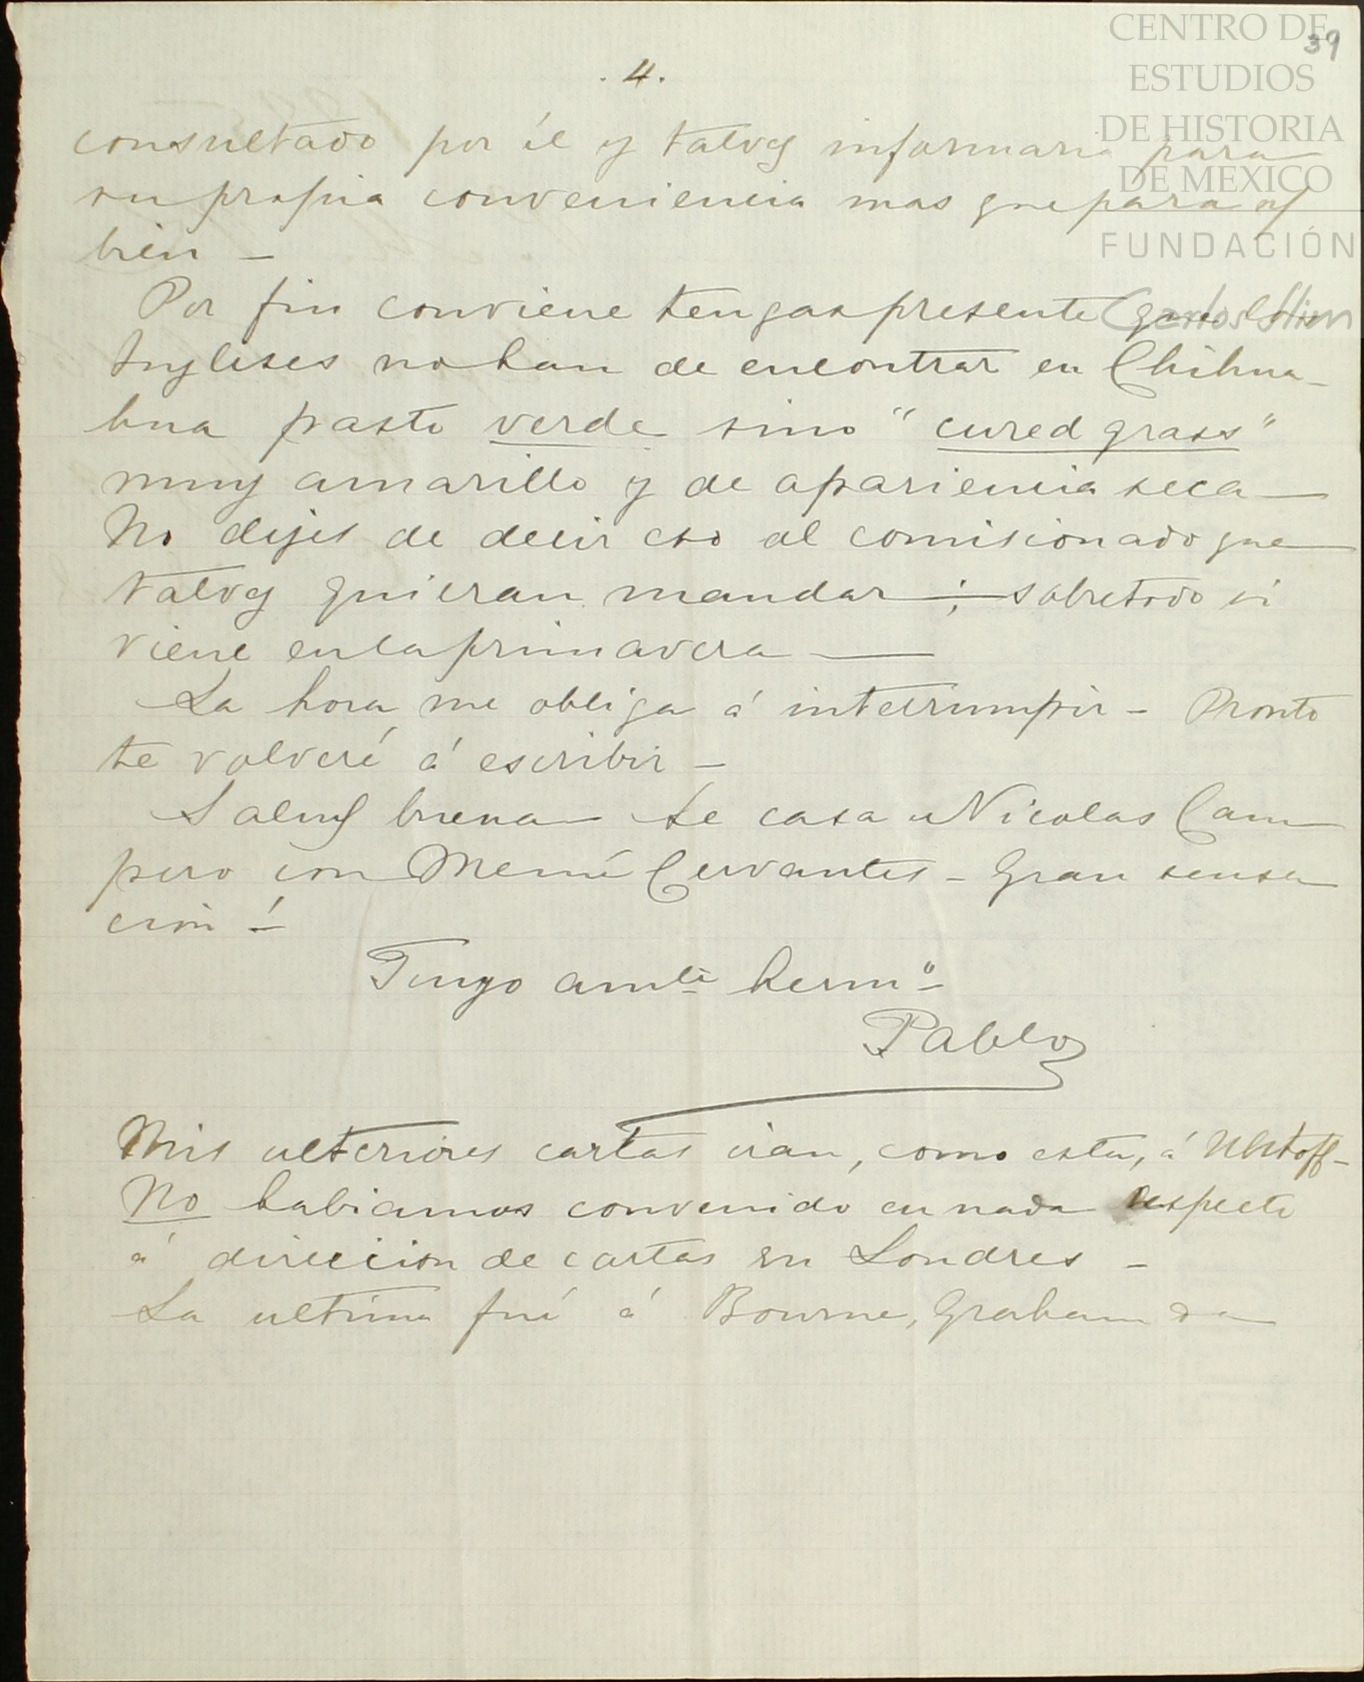 CENTRO DE
ESTUDIOS
DE HISTORIA
DE MEXICO
FUNDACIÓN
Carlos Slim
39
. 4 .
consultado por él y talvez informaria para
su propia conveniencia mas que para el
bien —
Por fin conviene tengas presente que los
Ingleses no han de encontrar en Chihua-
hua pasto verde sino "cured grass"
muy amarillo y de apariencia seca —
No dejes de decir eso al comisionado que
talvez quieran mandar ; — sobretodo si
viene en la primavera —
La hora me obliga á interrumpir — Pronto
te volveré á escribir —
Salud buena — Se casa Nicolas Cam
pero con Memé Cervantes — Gran sensa
cion ! —
Tuyo amte hermo
Pablo
Mis ulteriores cartas irán, como esta, á
No habiamos convenido en nada respecto
á direccion de cartas en Londres —
La ultima fué á Bourne, Graham